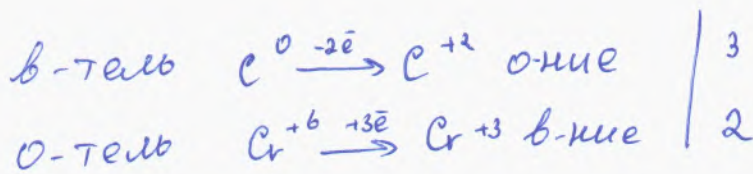 в-тель C⁰ -2ē → C⁺² о-ние | 3
о-тель Cr⁺⁶ +3ē → Cr⁺³ в-ние | 2